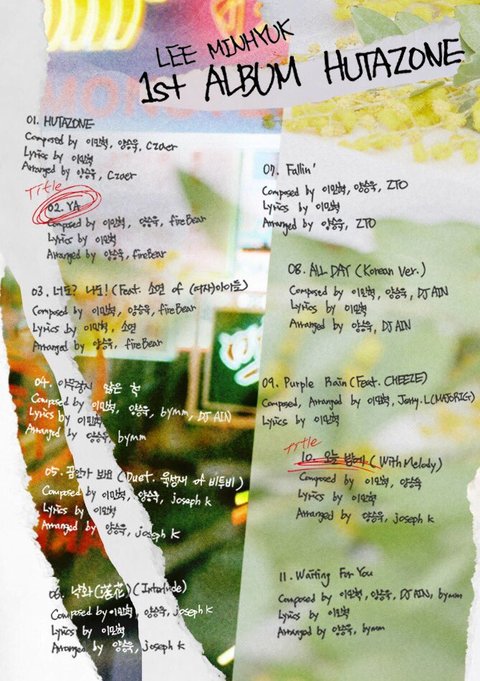 LEE MINHYUK
1st ALBUM HUTAZONE
01. HUTAZONE
Composed by 이민혁, 양승욱, Czaer
Lyrics by 이민혁
Arranged by 양승욱, Czaer
Title
02. YA
Composed by 이민혁, 양승욱, fireBear
Lyrics by 이민혁
Arranged by 양승욱, fireBear
03. 너도? 나도! (Feat. 소연 of (여자)아이들)
Composed by 이민혁, 양승욱, fireBear
Lyrics by 이민혁, 소연
Arranged by 양승욱, fireBear
04. 아무렇지 않은 척
Composed by 이민혁, 양승욱, bymm, DJ AIN
Lyrics by 이민혁
Arranged by 양승욱, bymm
05. 꿈인가 봐요 (Duet. 육성재 of 비투비)
Composed by 이민혁, 양승욱, joseph k
Lyrics by 이민혁
Arranged by 양승욱, joseph k
06. 낙화(落花) (Interlude)
Composed by 이민혁, 양승욱, joseph k
Lyrics by 이민혁
Arranged by 양승욱, joseph k
07. Fallin'
Composed by 이민혁, 양승욱, ZTO
Lyrics by 이민혁
Arranged by 양승욱, ZTO
08. ALL DAY (Korean Ver.)
Composed by 이민혁, 양승욱, DJ AIN
Lyrics by 이민혁
Arranged by 양승욱, DJ AIN
09. Purple Rain (Feat. CHEEZE)
Composed, Arranged by 이민혁, Jerry.L(MAJORIGT)
Lyrics by 이민혁
Title
10. 오늘 밤에 (With Melody)
Composed by 이민혁, 양승욱
Lyrics by 이민혁
Arranged by 양승욱, joseph k
11. Waiting For You
Composed by 이민혁, 양승욱, DJ AIN, bymm
Lyrics by 이민혁
Arranged by 양승욱, bymm